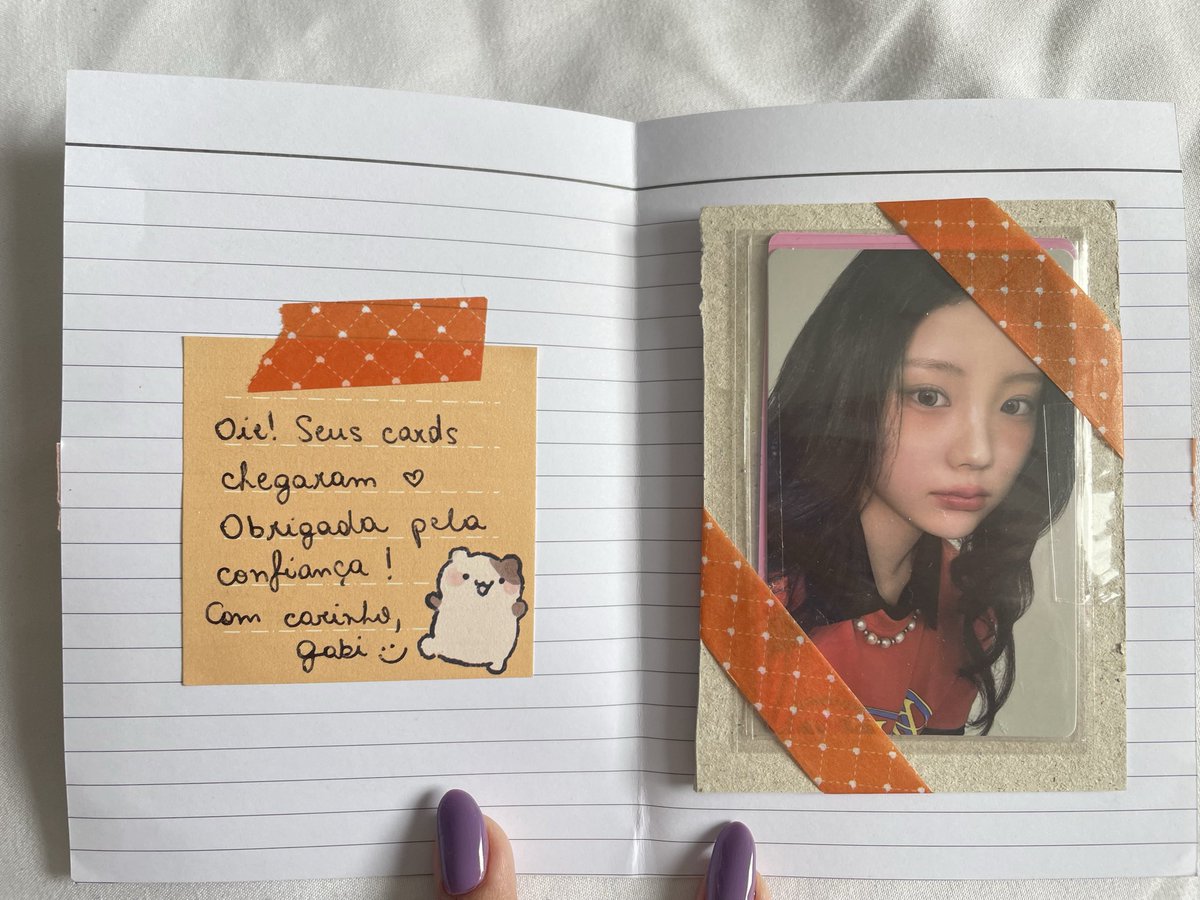 Oie! Seus cards
chegaram ♡
Obrigada pela
confiança!
Com carinho,
gabi :)